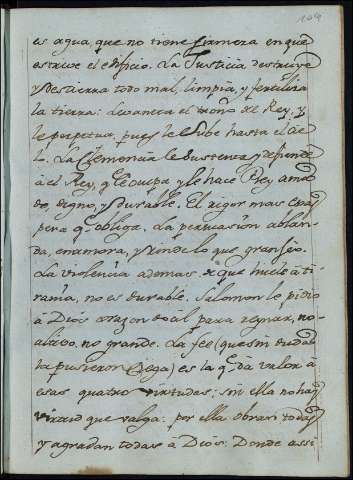 104
es agua, que no tiene firmeza en que
estrive el edificio. La Justicia destruye
y destierra todo mal, limpia, y fertiliza
la tierra: Levanta el trono del Rey, y
le perpetua, pues le sube hasta el Cie-
lo. La Clemencia le sustenta, y defiende
à el Rey, y le hace Rey ama
do, digno, y durable. El rigor mas exas
pera q.e obliga. La persuasion ablan-
da, enamora, y rinde lo que grangeo.
La violencia ademas de que huele à ti-
rania, no es durable. Salomon le pidio
à Dios corazon docil para reynar, no-
altivo, no grande. La fee (que sin duda
la pusieron Ciega) es la q.e dà valor à
esas quatro virtudes: sin ella no hay
virtud que valga: por ella obran todas
y agradan todas à Dios: Donde assi